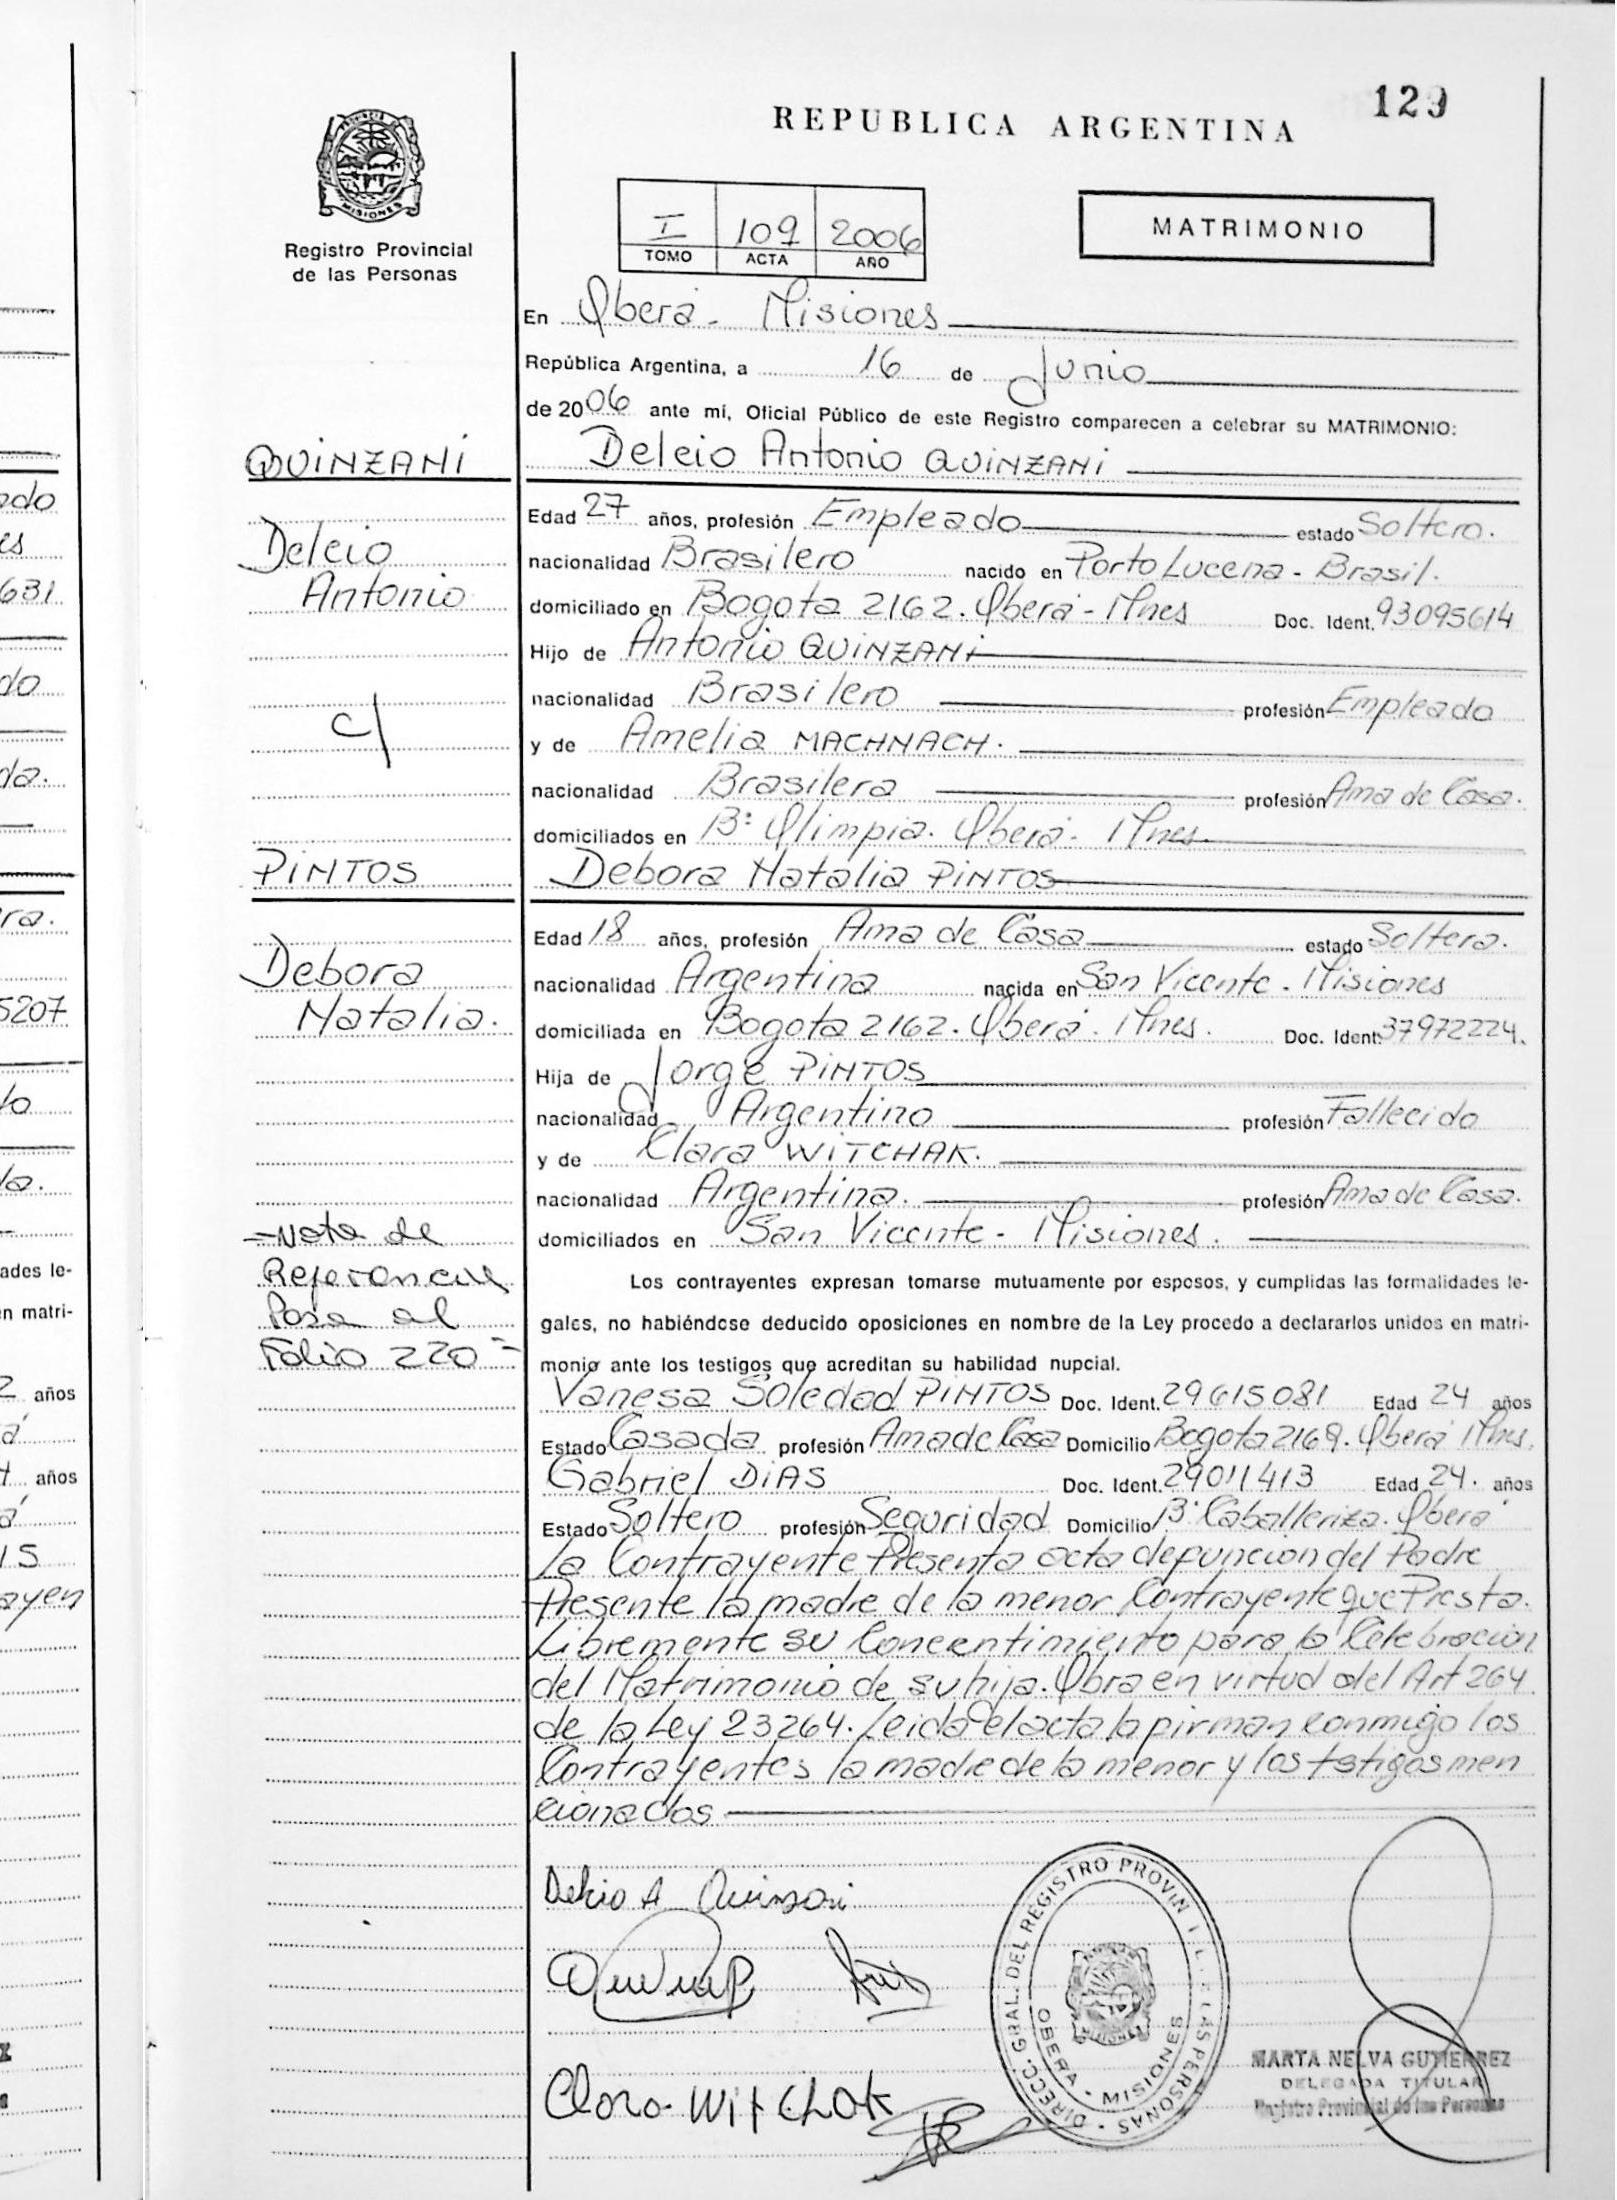 129
REPUBLICA ARGENTINA
MISIONES
Registro Provincial
de las Personas
I 109 2006
TOMO ACTA AÑO
MATRIMONIO
En Oberá - Misiones
República Argentina, a 16 de Junio
de 2006 ante mí, Oficial Público de este Registro comparecen a celebrar su MATRIMONIO:
QUINZANI
Delcio Antonio QUINZANI
Delcio
Antonio
Edad 27 años, profesión Empleado estado Soltero.
nacionalidad Brasilero nacido en Porto Lucena - Brasil.
domiciliado en Bogota 2162. Oberá - Mnes Doc. Ident. 93095614
Hijo de Antonio QUINZANI
nacionalidad Brasilero profesión Empleado
c/
y de Amelia MACHNACH.
nacionalidad Brasilera profesión Ama de Casa.
domiciliados en B: Olimpia. Oberá - Mnes
PINTOS
Debora Natalia PINTOS
Debora
Natalia.
Edad 18 años, profesión Ama de Casa estado Soltera.
nacionalidad Argentina nacida en San Vicente - Misiones
domiciliada en Bogota 2162. Oberá. Mnes. Doc. Ident: 37972224.
Hija de Jorge PINTOS
nacionalidad Argentino profesión Fallecido
y de Clara WITCHAK.
nacionalidad Argentina. profesión Ama de Casa.
domiciliados en San Vicente - Misiones.
- Nota de
Referencia
Pasa al
Folio 220 =
Los contrayentes expresan tomarse mutuamente por esposos, y cumplidas las formalidades le-
gales, no habiéndose deducido oposiciones en nombre de la Ley procedo a declararlos unidos en matri-
monio ante los testigos que acreditan su habilidad nupcial.
Vanesa Soledad PINTOS Doc. Ident. 29615081 Edad 24 años
Estado Casada profesión Ama de Casa Domicilio Bogota 2169. Oberá Mnes.
Gabriel DIAS Doc. Ident. 29011413 Edad 24. años
Estado Soltero profesión Seguridad Domicilio B: Caballeriza. Oberá
La Contrayente Presenta acta defuncion del Padre
Presente la madre de la menor Contrayente que Presta.
Libremente su Concentimiento para la Celebracion
del Matrimonio de su hija. Obra en virtud del Art 264
de la Ley 23264. Leida el acta la firman conmigo los
Contrayentes la madre de la menor y los testigos men
cionados
Delcio A Quinzani
Clara Witchak
DIRECC. GRAL. DEL REGISTRO PROVIN LAS PERSONAS
OBERA - MISIONES
MISIONES
MARTA NELVA GUTIERREZ
DELEGADA TITULAR
Registro Provincial de las Personas
ado
es
631
do
da.
ra.
5207
to
da.
ades le-
n matri-
2 años
á
años
á
ayen